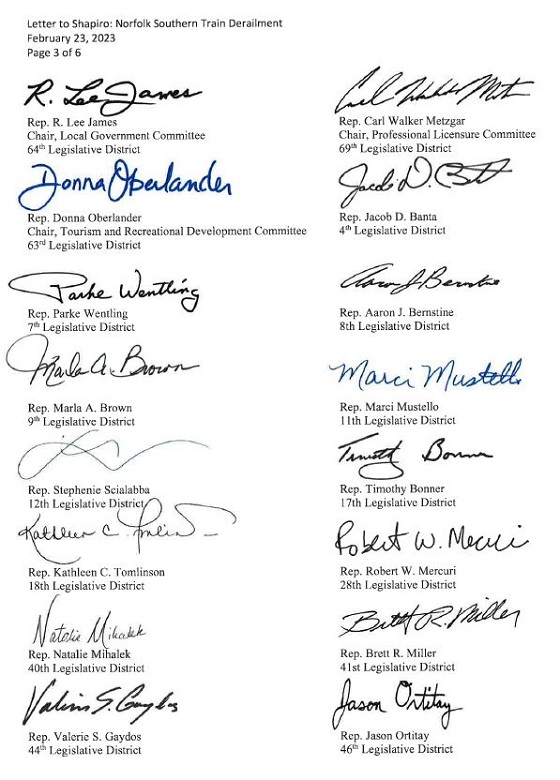 Letter to Shapiro: Norfolk Southern Train Derailment
February 23, 2023
Page 3 of 6
R. Lee James
Rep. R. Lee James
Chair, Local Government Committee
64th Legislative District
Carl Walker Metzgar
Rep. Carl Walker Metzgar
Chair, Professional Licensure Committee
69th Legislative District
Donna Oberlander
Rep. Donna Oberlander
Chair, Tourism and Recreational Development Committee
63rd Legislative District
Jacob D. Banta
Rep. Jacob D. Banta
4th Legislative District
Parke Wentling
Rep. Parke Wentling
7th Legislative District
Aaron J Bernstine
Rep. Aaron J. Bernstine
8th Legislative District
Marla A. Brown
Rep. Marla A. Brown
9th Legislative District
Marci Mustello
Rep. Marci Mustello
11th Legislative District
Rep. Stephenie Scialabba
12th Legislative District
Timothy Bonner
Rep. Timothy Bonner
17th Legislative District
Kathleen C. Tomlinson
Rep. Kathleen C. Tomlinson
18th Legislative District
Robert W. Mercuri
Rep. Robert W. Mercuri
28th Legislative District
Natalie Mihalek
Rep. Natalie Mihalek
40th Legislative District
Brett R. Miller
Rep. Brett R. Miller
41st Legislative District
Valerie S. Gaydos
Rep. Valerie S. Gaydos
44th Legislative District
Jason Ortitay
Rep. Jason Ortitay
46th Legislative District